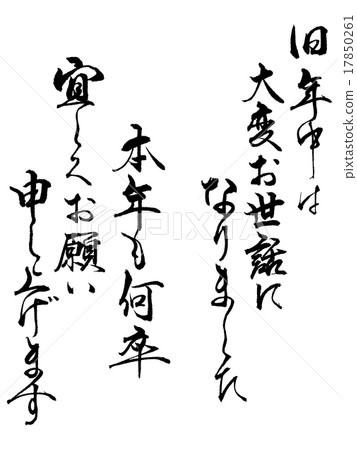 旧年中は
大変お世話に
なりました
本年も何卒
宜しくお願い
申し上げます
17850261